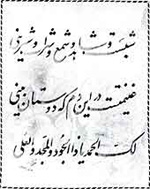 شبست و شاهد و شمع و شراب و شیرینی
غنیمت در این دم که دوستان بینی
لک الحمد یا ذا الجود و المجد و العلی